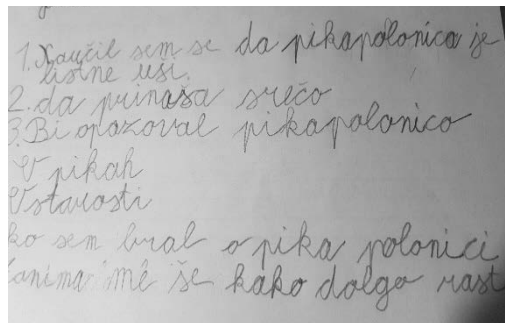 1. Naučil sem se da pikapolonica je
listne uši.
2. da prinaša srečo
3. Bi opazoval pikapolonico
V pikah
Vstarosti
ko sem bral o pika polonici
Zanima me še kako dolgo rast